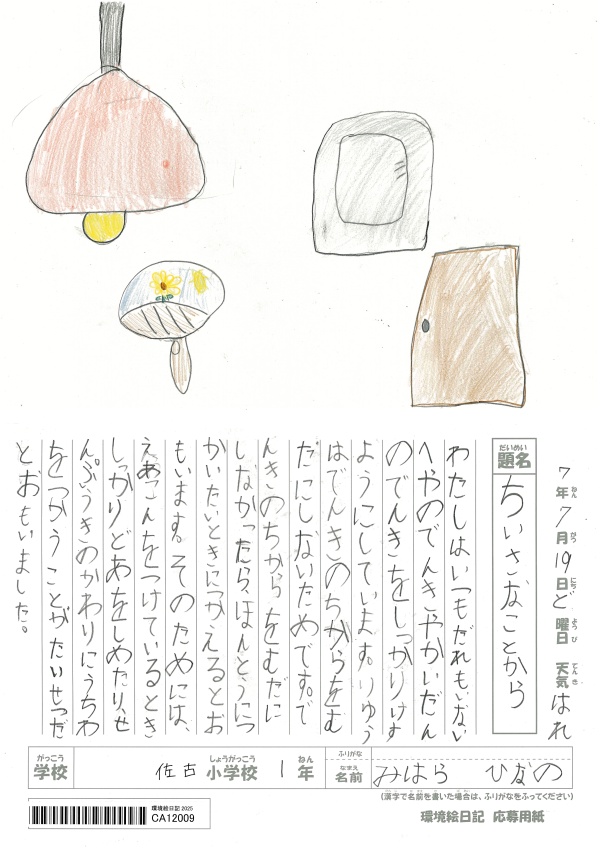 7年ねん7月がつ19日にちど曜日ようび 天気てんきはれ
題名だいめい ちいさなことから
わたしはいつもだれもいない
へやのでんきやかいだん
のでんきをしっかりけす
ようにしています。りゆう
はでんきのちからをむ
だにしないためです。で
んきのちからをむだに
しなかったら、ほんとうにつ
かいたいときにつかえるとお
もいます。そのためには、
えあこんをつけているとき
しっかりどあをしめたり、せ
んぷうきのかわりにうちわ
をつかうことがたいせつだ
とおもいました。
学校がっこう 佐古 小学校しょうがっこう 1年ねん
ふりがな
名前なまえ みはら ひなの
(漢字で名前を書いた場合は、ふりがなをふってください)
環境絵日記 2025
CA12009
環境絵日記 応募用紙